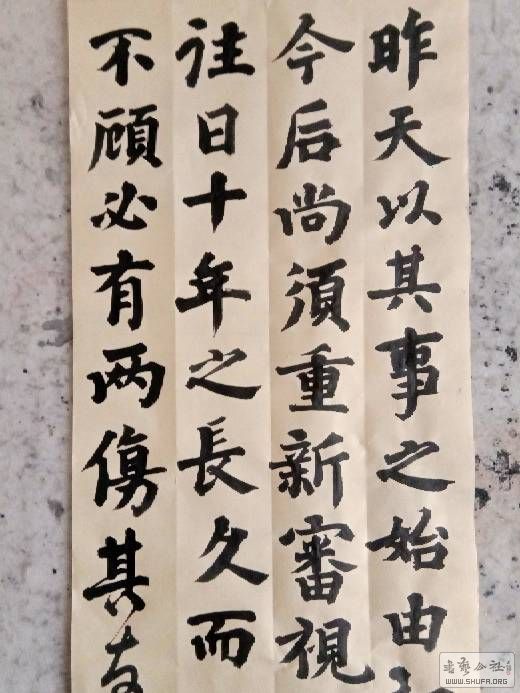 昨天以其事之始由
今后尚須重新審視
往日十年之長久而
不頋必有两傷其
書藝公社
WWW.SHUFA.ORG